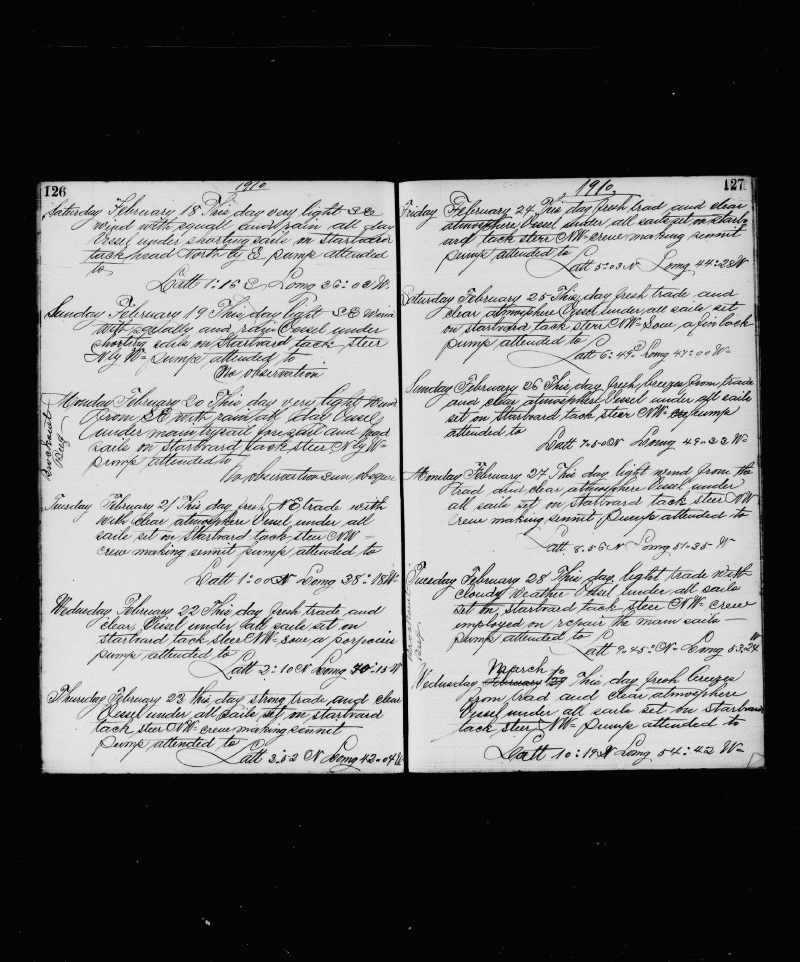 126
1910
Saturday February 18 This day very light SE
wind with squall and rain all day
Vessel under shorting sails on starboard
tack head North by E pump attended
to
Latt 1:16 Long 36:0 W
Sunday February 19 This day light SE wind
with and rain Vessel under
shorting sails on starboard tack steer
N by W pump attended to
No observation
Monday February 20 This day very light wind
from SE with rain all day Vessel
under main topsail foresail and head
sails on starboard tack steer N by W
pump attended to
No observation sun obsqure
Beef
Tuesday February 21 This day fresh NE trade with
with clear atmosphere Vessel under all
sails set on starboard tack steer NW
crew making sennit pump attended to
Latt 1:00 N Long 38:18 W
Wednesday February 22 This day fresh trade and
clear Vessel under all sails set on
starboard tack steer NW saw a porpoises
pump attended to
Latt 2:10 N Long 40:15 W
Thursday February 23 this day strong trade and clear
Vessel under all sails set on starboard
tack steer NW crew making sennit
pump attended to
Latt 3:52 N Long 42:04 W
127
1910
Friday February 24 This day fresh trad and clear
atmosphere Vessel under all sails set on starbo
ard tack steer NW crew making sennit
pump attended to
Latt 5:03 N Long 44:28 W
Saturday February 25 This day fresh trade and
clear atmosphere Vessel under all sails set
on starboard tack steer NW saw a finback
pump attended to
Latt 6:49 Long 47:00 W
Sunday February 26 This day fresh breezes from trade
and clear atmosphere Vessel under all sails
set on starboard tack steer NW pump
attended to
Latt 7:50 N Long 49:33 W
Monday February 27 This day light wind from the
trad and clear atmosphere Vessel under
all sails set on starboard tack steer NW
Crew making sennit Pump attended to
Latt 8:56 N Long 51:35 W
Tuesday February 28 This day light trade with
cloudy weather Vessel under all sails
set on starboard tack steer NW crew
employed on repair the main sails
pump attended to
Latt 9:45 N Long 53:24 W
Beef
March
Wednesday February This day fresh breezes
from trad and clear atmosphere
Vessel under all sails set on starboard
tack steer NW pump attended to
Latt 10:19 N Long 54:42 W